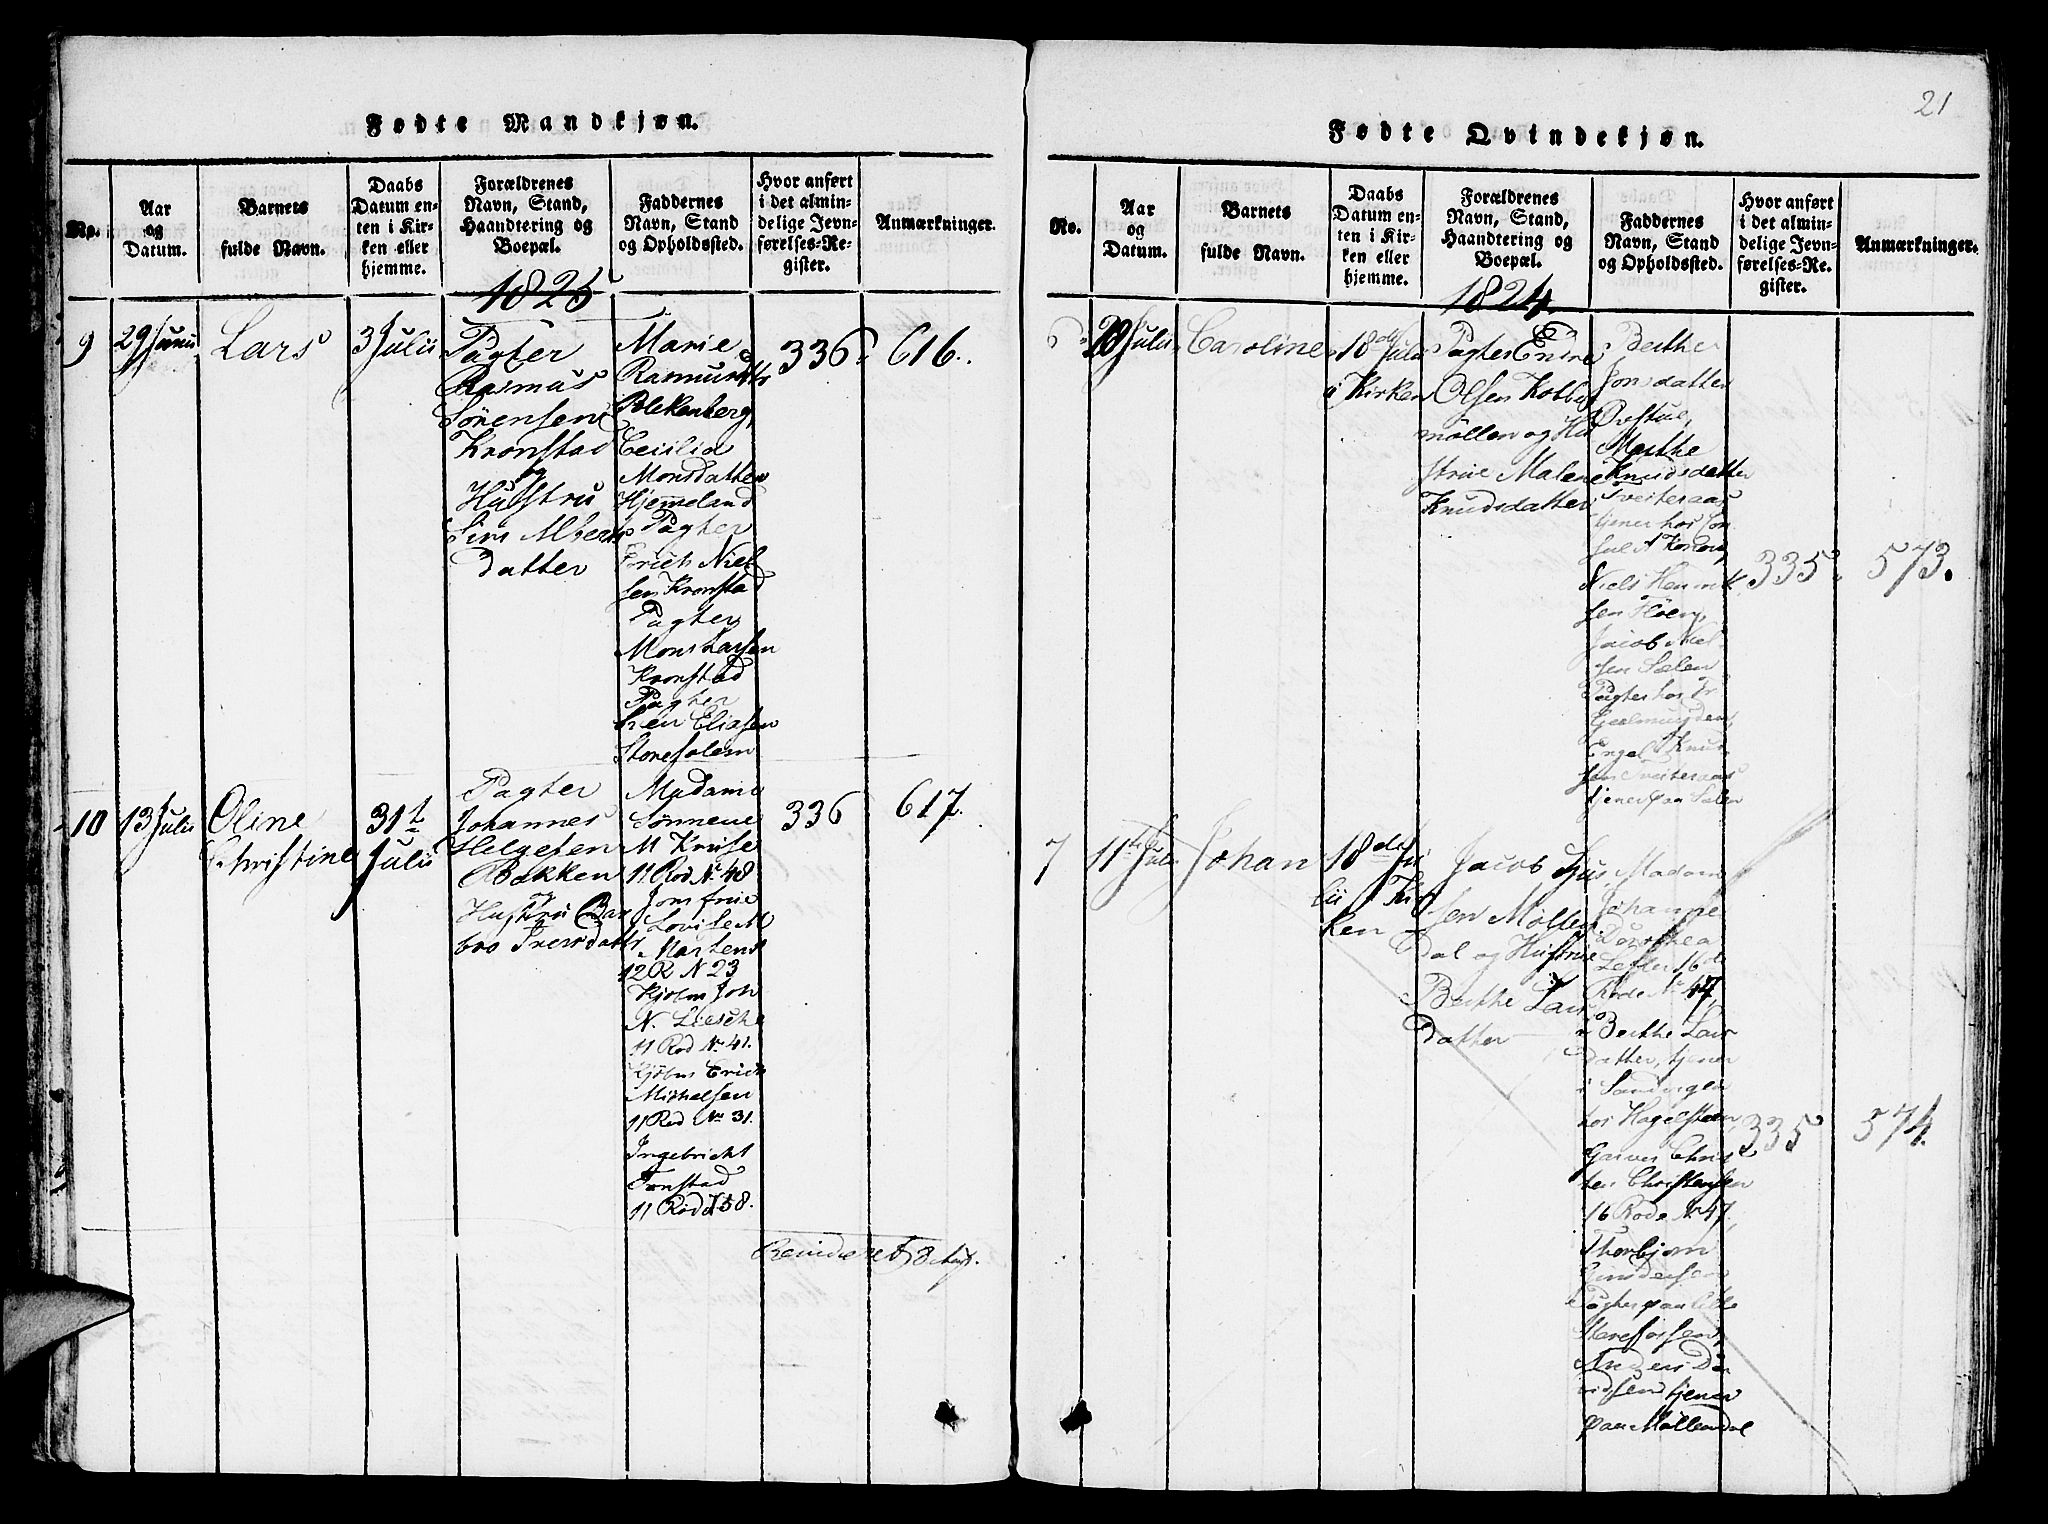 Fødte Mandkjøn.
No.
Aar
og
Datum.
Barnets
fulde Navn.
Daabs
Datum en-
ten i Kir-
ken eller
hjemme.
Forældrenes
Navn, Stand,
Haandtering og
Boepæl.
Faddernes
Navn, Stand
og Opholdssted.
Hvor anført
i det almin-
delige Jevn-
førelses-Re-
gister.
Anmærkninger.
1825
9
29 Junii
Lars
3 Julii
Pagter
Rasmus
Sørensen
Kronstad
og
Hustru
Siri Alberts
datter
Marie
Rasmusdtr
Blekenberg,
Cecilia
Monsdatter
Hjemeland
Pagter
Erich Niel
sen Kronstad
Pagter
Mons Larsen
Kronstad
Pagter
Eliasen
Storesolem
336
616.
10
13 Julii
Oline
Christine
31t
Julii
Pagter
Johannes
Helgesen
Bakken
og
Hustru Bar
bro Iversdattr
Madame
Sønneve
M Kruse
11 Rod No 48
Jomfrue
Lovise M
Martens
12 R N 23
Kjøbm Joh
N. Liesche
11 Rod No 41.
Kjøbm Erich
Michelsen
11 Rod No 31.
Ingebricht
Tonstad
11 Rod 158.
336
617.
21
Fødte Qvindekjøn.
No.
Aar
og
Datum.
Barnets
fulde Navn.
Daabs
Datum en-
ten i Kir-
ken eller
hjemme.
Forældrenes
Navn, Stand,
Haandtering og
Boepæl.
Faddernes
Navn, Stand
og Opholdssted.
Hvor anført
i det almin-
delige Jevn-
førelses-Re-
gister.
Anmærkninger.
1824.
6
Julii
Caroline
18de Julii
i Kirken
Pagter Endre
Olsen Kolby
møllen og Hu
strue Malene
Knudsdatter
Berthe
Jonsdatter
Øvstue,
Marthe
Knudsdatter
Tveiteraas
tjener hos Con
sul A Konow
Niels Henrik
sen Fløen,
Jacob Niel
sen Sælen
Pagter hos Fr
Engel Knud
sen Tveiteraas
tjener paa Sælen
335
573.
7
11te Julii
Johan
18de Ju
lii i Kir
ken
Jacob Sjur
sen Møllen
dal og Hustrue
Berthe Lars
datter
Madam
Johanne
Dorothea
16de
Rode No 47,
Berthe Lars
datter, tjener
i Sandvigen
hos Hagelsteen,
Garver Chris
ten Christensen
16 Rode No 47,
Thorbjørn
Pagter paa lille
Anders Da
vidsen tjener
paa Møllendal
335
574.